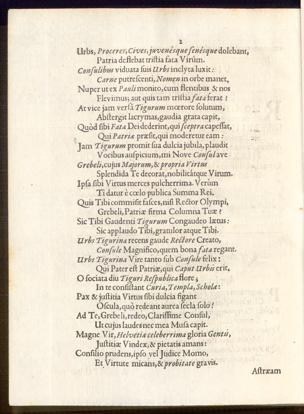 2
Urbs, Proceres, Cives, juvenésque senésque dolebant,
Patria deflebat tristia fata Virûm.
Consulibus viduata suis Urbs inclyta luxit:
Carne putrescenti, Nomen in orbe manet,
Nuper ut ex Pauli monito, cum flentibus & nos
Flevimus; aut quis tam tristia fata ferat!
At vice jam versâ Tigurum mœrore solutum,
Abstergit lacrymas, gaudia grata capit,
Quòd sibi Fata Dei dederint, qui sceptra capessat,
Qui Patriæ præsit, qui moderetur eam:
Jam Tigurum promit sua dulcia jubila, plaudit
Vocibus auspicium, mi Nove Consul ave
Grebeli, cujus Majorum, & propria Virtus
Splendida Te decorat, nobilitátque Virum.
Ipsa sibi Virtus merces pulcherrima. Verùm
Ti datur è cœlo publica Summa Rei,
Quis Tibi commisit fasces, nisi Rector Olympi,
Grebeli, Patriæ firma Columna Tuæ!
Sic Tibi Gaudenti Tigurum Congaudeo lætus:
Sic applaudo Tibi, gratulor atque Tibi.
Urbs Tigurina recens gaude Rectore Creato,
Consule Magnifico, quem bona fata regant.
Urbs Tigurina Vire tanto sub Consule felix:
Qui Pater est Patriæ, qui Caput Urbis erit,
O sociata diu Tiguri Respublica flore;
In te consistant Curia, Templa, Scholæ:
Pax & justitia Virtus sibi dulcia figant
Oscula, quò redeant aurea secla solo!
Ad Te, Grebeli, redeo, Clarissime Consul,
Ut cujus laudes nec mea Musa capit.
Magne Vir, Helvetiæ celeberrima gloria Gentis,
Justitiæ Vindex, & pietatis amans:
Consilio prudens, ipso vel Judice Momo,
Et Virtute micans, & probitate gravis.
Astræam